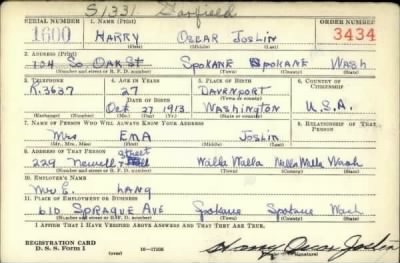 S1331 Garfield
SERIAL NUMBER 1. NAME (Print) ORDER NUMBER
1600 HARRY OSCAR JOSLIN 3434
(First) (Middle) (Last)
2. ADDRESS (Print)
104 So OAK St SPOKANE SPOKANE WASH
(Number and street or R. F. D. number) (Town) (County) (State)
3. TELEPHONE 4. AGE IN YEARS 5. PLACE OF BIRTH 6. COUNTRY OF CITIZENSHIP
K.3637 27 DAVENPORT
DATE OF BIRTH (Town or county)
Oct 27 1913 WASHINGTON U.S.A.
(Exchange) (Number) (Mo.) (Day) (Yr.) (State or country)
7. NAME OF PERSON WHO WILL ALWAYS KNOW YOUR ADDRESS 8. RELATIONSHIP OF THAT PERSON
Mrs EMA JOSLIN
(Mr., Mrs., Miss) (First) (Middle) (Last)
9. ADDRESS OF THAT PERSON
229 Newell Street Walla Walla Walla Walla Wash
(Number and street or R. F. D. number) (Town) (County) (State)
10. EMPLOYER'S NAME
Mr E. LANG
11. PLACE OF EMPLOYMENT OR BUSINESS
610 SPRAGUE AVE Spokane Spokane Wash
(Number and street or R. F. D. number) (Town) (County) (State)
I AFFIRM THAT I HAVE VERIFIED ABOVE ANSWERS AND THAT THEY ARE TRUE.
REGISTRATION CARD
D. S. S. Form 1 (over) Harry Oscar Joslin